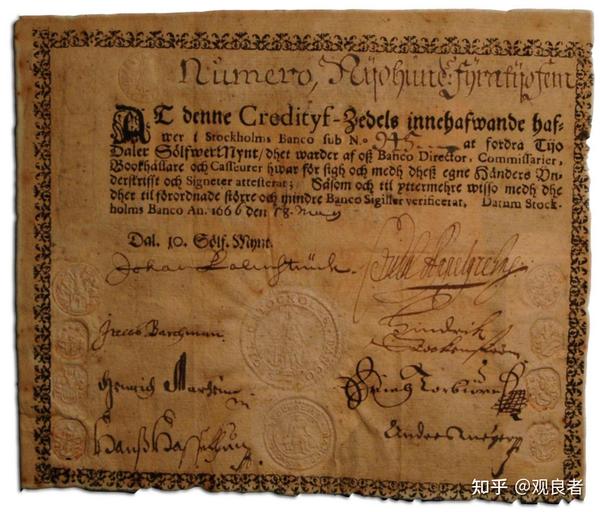 Numero, Nijohund: fyratijofem
AT denne Credityf-Zedels innehafwande haf-
wer i Stockholms Banco sub N.o 945. at fordra Tijo
Daler SölfwerMynt/ dhet warder af oß Banco Director, Commissarier,
Bookhållare och Casseurer hwar för sigh och medh dheß egne Händers Un-
derskrifft och Signeter attesterat; Såsom och til yttermehre wisso medh dhe
dher til förordnade större och mindre Banco Sigiller verificerat, Datum Stock-
holms Banco An. 1666 den 18. May
Dal. 10. Sölf. Mynt.
Johan Palmstruck
Jacob Barchman
Hindrik
Andres Meyer
知乎 @观良者